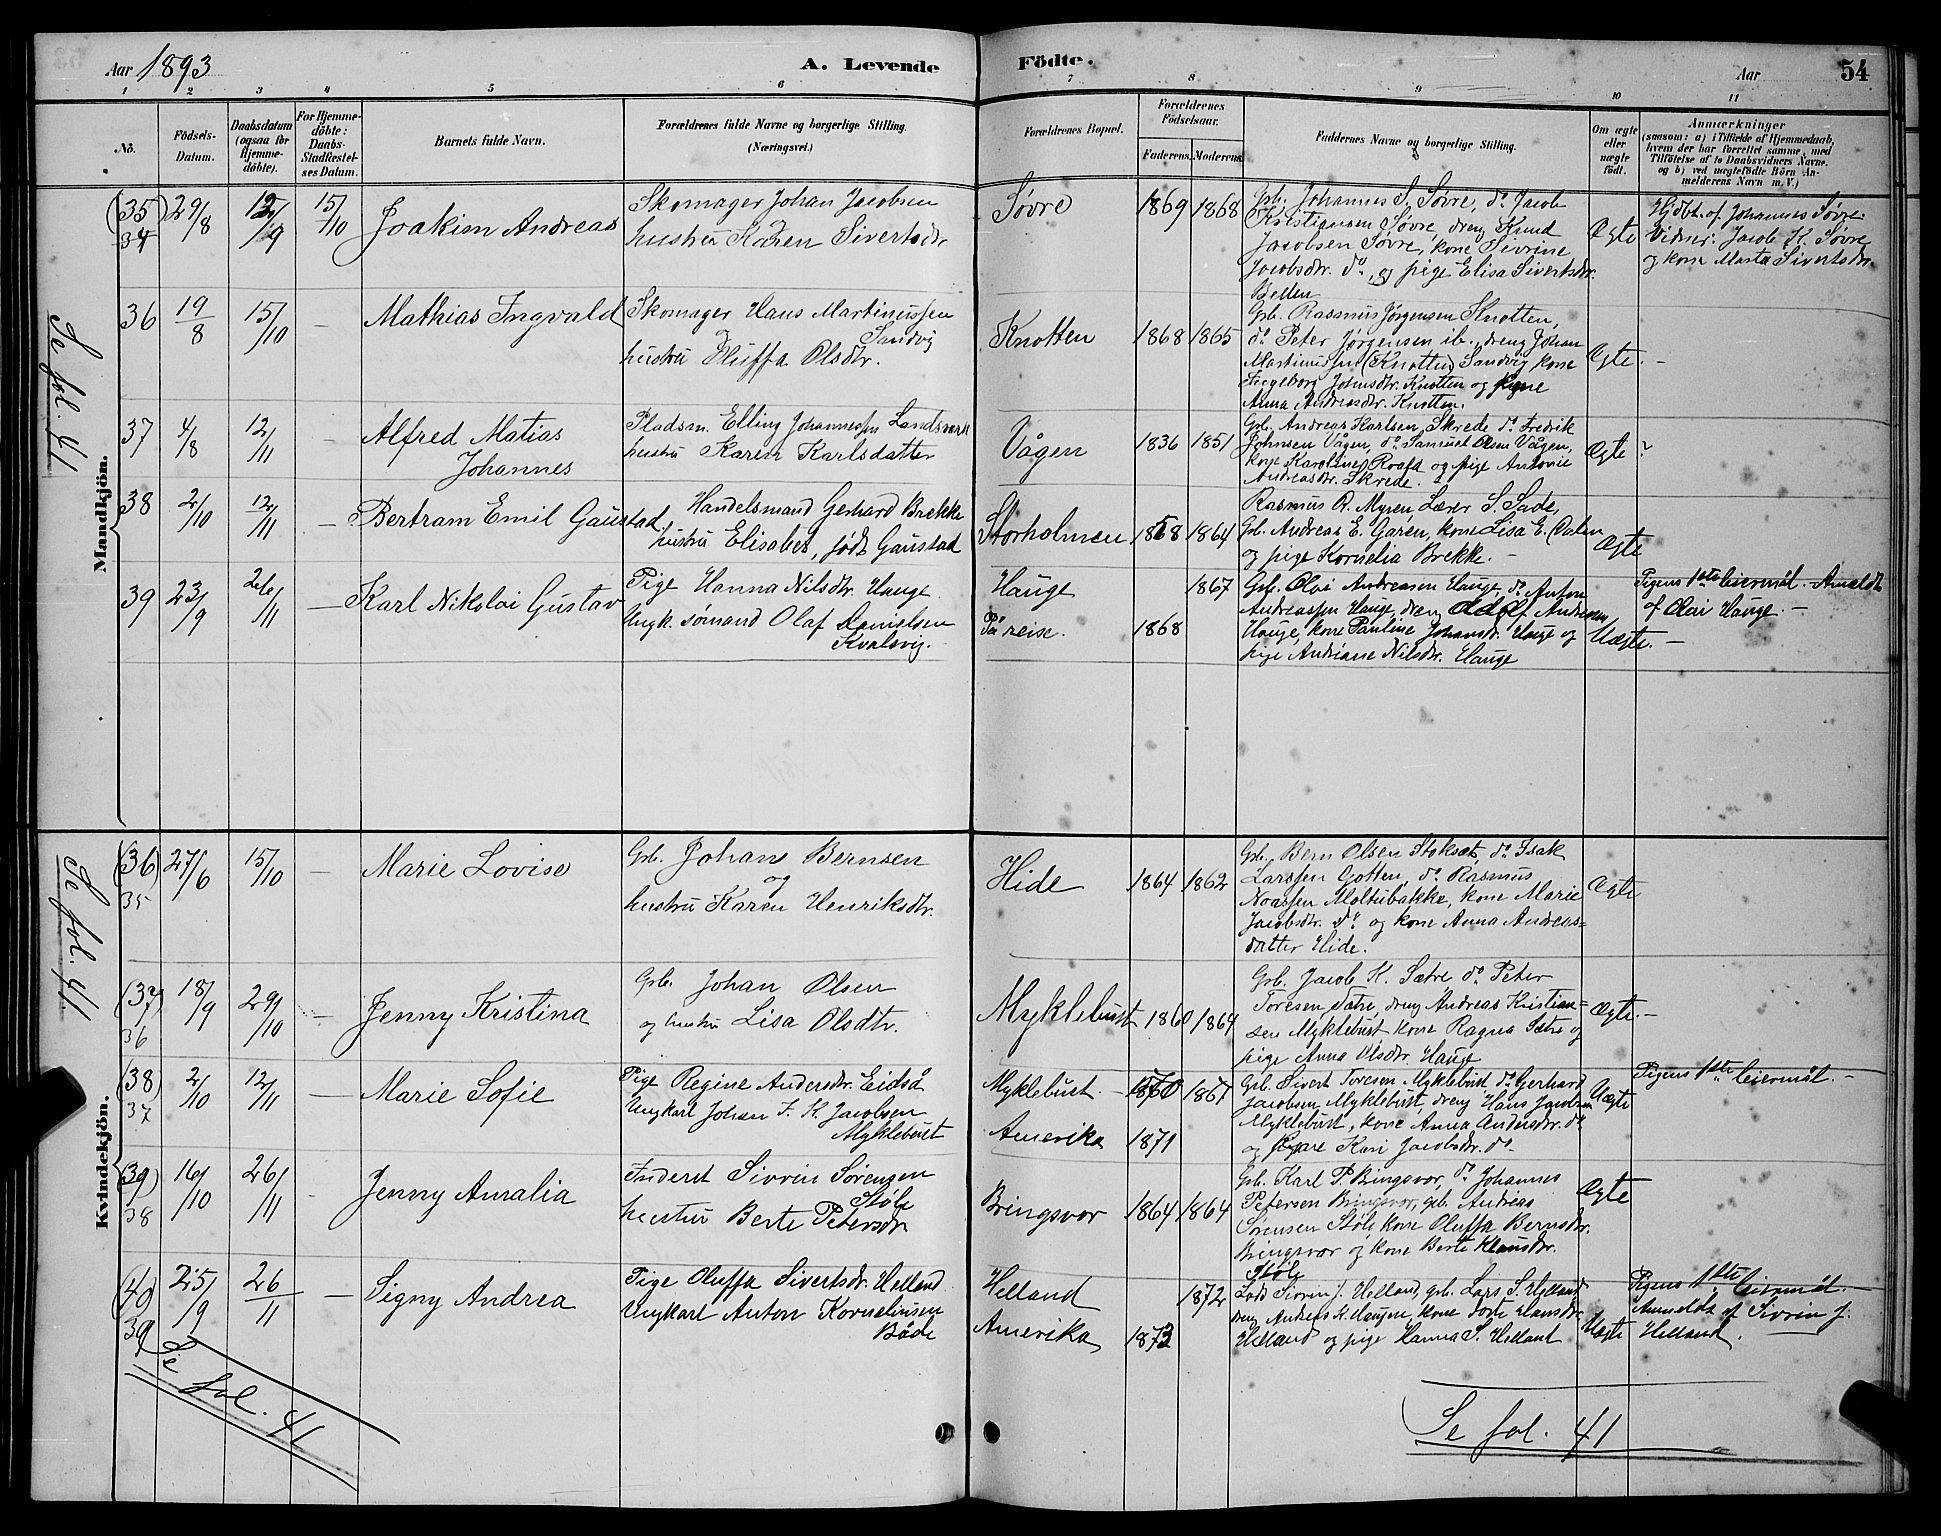 Aar 1893
A. Levende
Födte.
Aar
54
1 2 3 4 5 6 7 8 9 10 11
No.
Födsels-
Datum.
Daabsdatum
(ogsaa for
Hjemme-
döbte).
For Hjemme-
döbte:
Daabs-
Stadfæstel-
ses Datum.
Barnets fulde Navn.
Forældrenes fulde Navne og borgerlige Stilling.
(Næringsvei.)
Forældrenes Bopæl.
Forældrenes
Födselsaar.
Faderens. Moderens.
Faddernes Navne og borgerlige Stilling.
Om ægte
eller
uægte
födt.
Anmærkninger
(saasom: a) i Tilfælde af Hjemmedaab,
hvem der har forrettet samme, med
Tilföielse af to Daabsvidners Navne.
og b) ved uægtefödte Börn An-
melderens Navn m. V.)
Mandkjön.
Se fol. 41
(35)
34
29/8
12/9
15/10
Joakim Andreas
Skomager Johan Jacobsen
hustru Karen Sivertsdtr
Søvre
1869 1868
Grb. Johannes S. Søvre, do Jacob
Kristiansen Søvre, dreng Knud
Jacobsen Søvre, kone Sivrine
Jacobsdtr. do, og pige Elisa Sivertsdtr.
Ægte
Hjdbt. af Johannes Søvre.
Vidner: Jacob K. Søvre
og kone Marta Sivertsdtr.
36
19/8
15/10
-
Mathias Ingvald
Skomager Hans Martinussen
Sandvig
og
hustru Oluffa Olsdtr.
Knotten
1868 1865
Grb. Rasmus Jørgensen Knotten,
do Peter Jørgensen ib., dreng Johan
Martinussen (Knotten) Sandvig kone
Ingeborg Johnsdtr. Knotten og kone
Anna Andreasdtr. Knotten.
Ægte.
-
37
4/8
12/11
-
Alfred Matias
Johannes
Pladsm. Elling Johannessen Landsværk
hustru Karen Karlsdatter
Vågen
1836 1851
Grb. Andreas Karlsen Skrede do Fredrik
Johnsen Vågen, do Samuel Olsen Vågen,
kone Karoline Roald og pige Antonie
Andreasdtr. Skrede.
Ægte
38
2/10
12/11
-
Bertram Emil Gaustad
Handelsmand Gerhard Brekke
hustru Elisabet, født Gaustad
Storholmen
1868 1864
Rasmus R. Myren Lærer S. Sade,
Grb. Andreas E. Garen, kone Lisa E. Dalen
og pige Kornelia Brekke. -
Ægte
39
23/9
26/11
-
Karl Nikolai Gustav
Pige Hanna Nilsdtr. Hauge
Ungk. sømand Olaf Danielsen
Kvalsvig.
Hauge
På reise.
1867
1868
Grb. Olai Andreasen Hauge, do Anton
Andreassen Hauge, dreng Adolf Andreasen
Hauge, kone Pauline Johansdr. Hauge og
pige Andriane Nilsdtr. Hauge
Uægte. -
Pigens 1ste leiermål. - Anmeldt
af Olai Hauge. -
Kvindekjön.
Se fol. 41
(36)
35
27/6
15/10
-
Marie Lovise
Grb. Johans Bernsen
og
hustru Karen Henriksdtr.
Hide
1864 1862
Grb. Bern Olsen Stokset, do Isak
Larssen Gotten, do Rasmus
Noassen Moltubakke, kone Marie
Jacobsdtr. do og kone Anna Andreas-
datter Hide.
Ægte
(37)
36
18/9
29/10
-
Jenny Kristina
Grb. Johan Olsen
og hustru Lisa Olsdtr.
Myklebust
1860 1864
Grb. Jacob K. Sætre, do Peter
Toresen Sætre, dreng Andreas Kristian-
sen Myklebust kone Ragna Sætre og
pige Anna Olsdtr. Hauge
Ægte. -
(38)
37
2/10
12/11
Marie Sofie
Pige Regine Andersdtr. Eidså
Ungkarl Johan F. K. Jacobsen
Myklebust
Myklebust. -
Amerika
1867
1871
Grb. Sivert Toresen Myklebust do Gerhard
Jacobsen Myklebust, dreng Hans Jacobsen
Myklebust, kone Anna Andersdtr. do
og kone Kari Jacobsdtr. do -
Uægte
Pigens 1ste leiermål. -
(39)
38
16/10
26/11
-
Jenny Amalia
Inderst Sivrin Sørensen
Støle
hustru Berte Petersdtr
Bringsvor
1864 1864
Grb. Karl P. Bringsvor, do Johannes
Petersen Bringsvor, grb. Andreas
Sørensen Støle, kone Oluffa Bernsdtr.
Bringsvor og kone Berte Klausdtr.
Støle
Ægte
(40)
39
25/9
26/11
-
Signy Andrea
Pige Oluffa Sivertsdr. Helland
Ungkarl Anton Korneliussen
Både
Helland
Amerika
1872
1873
Sivrin J. Helland, grb. Lars S. Helland
dreng Andreas K. Haugen, kone Dorte Hansdtr.
Helland og pige Hanna S. Helland
Uægte
Pigens 1ste leiermål. -
Anmeldt af Sivrin J.
Helland.
Se fol. 41
Se fol. 41